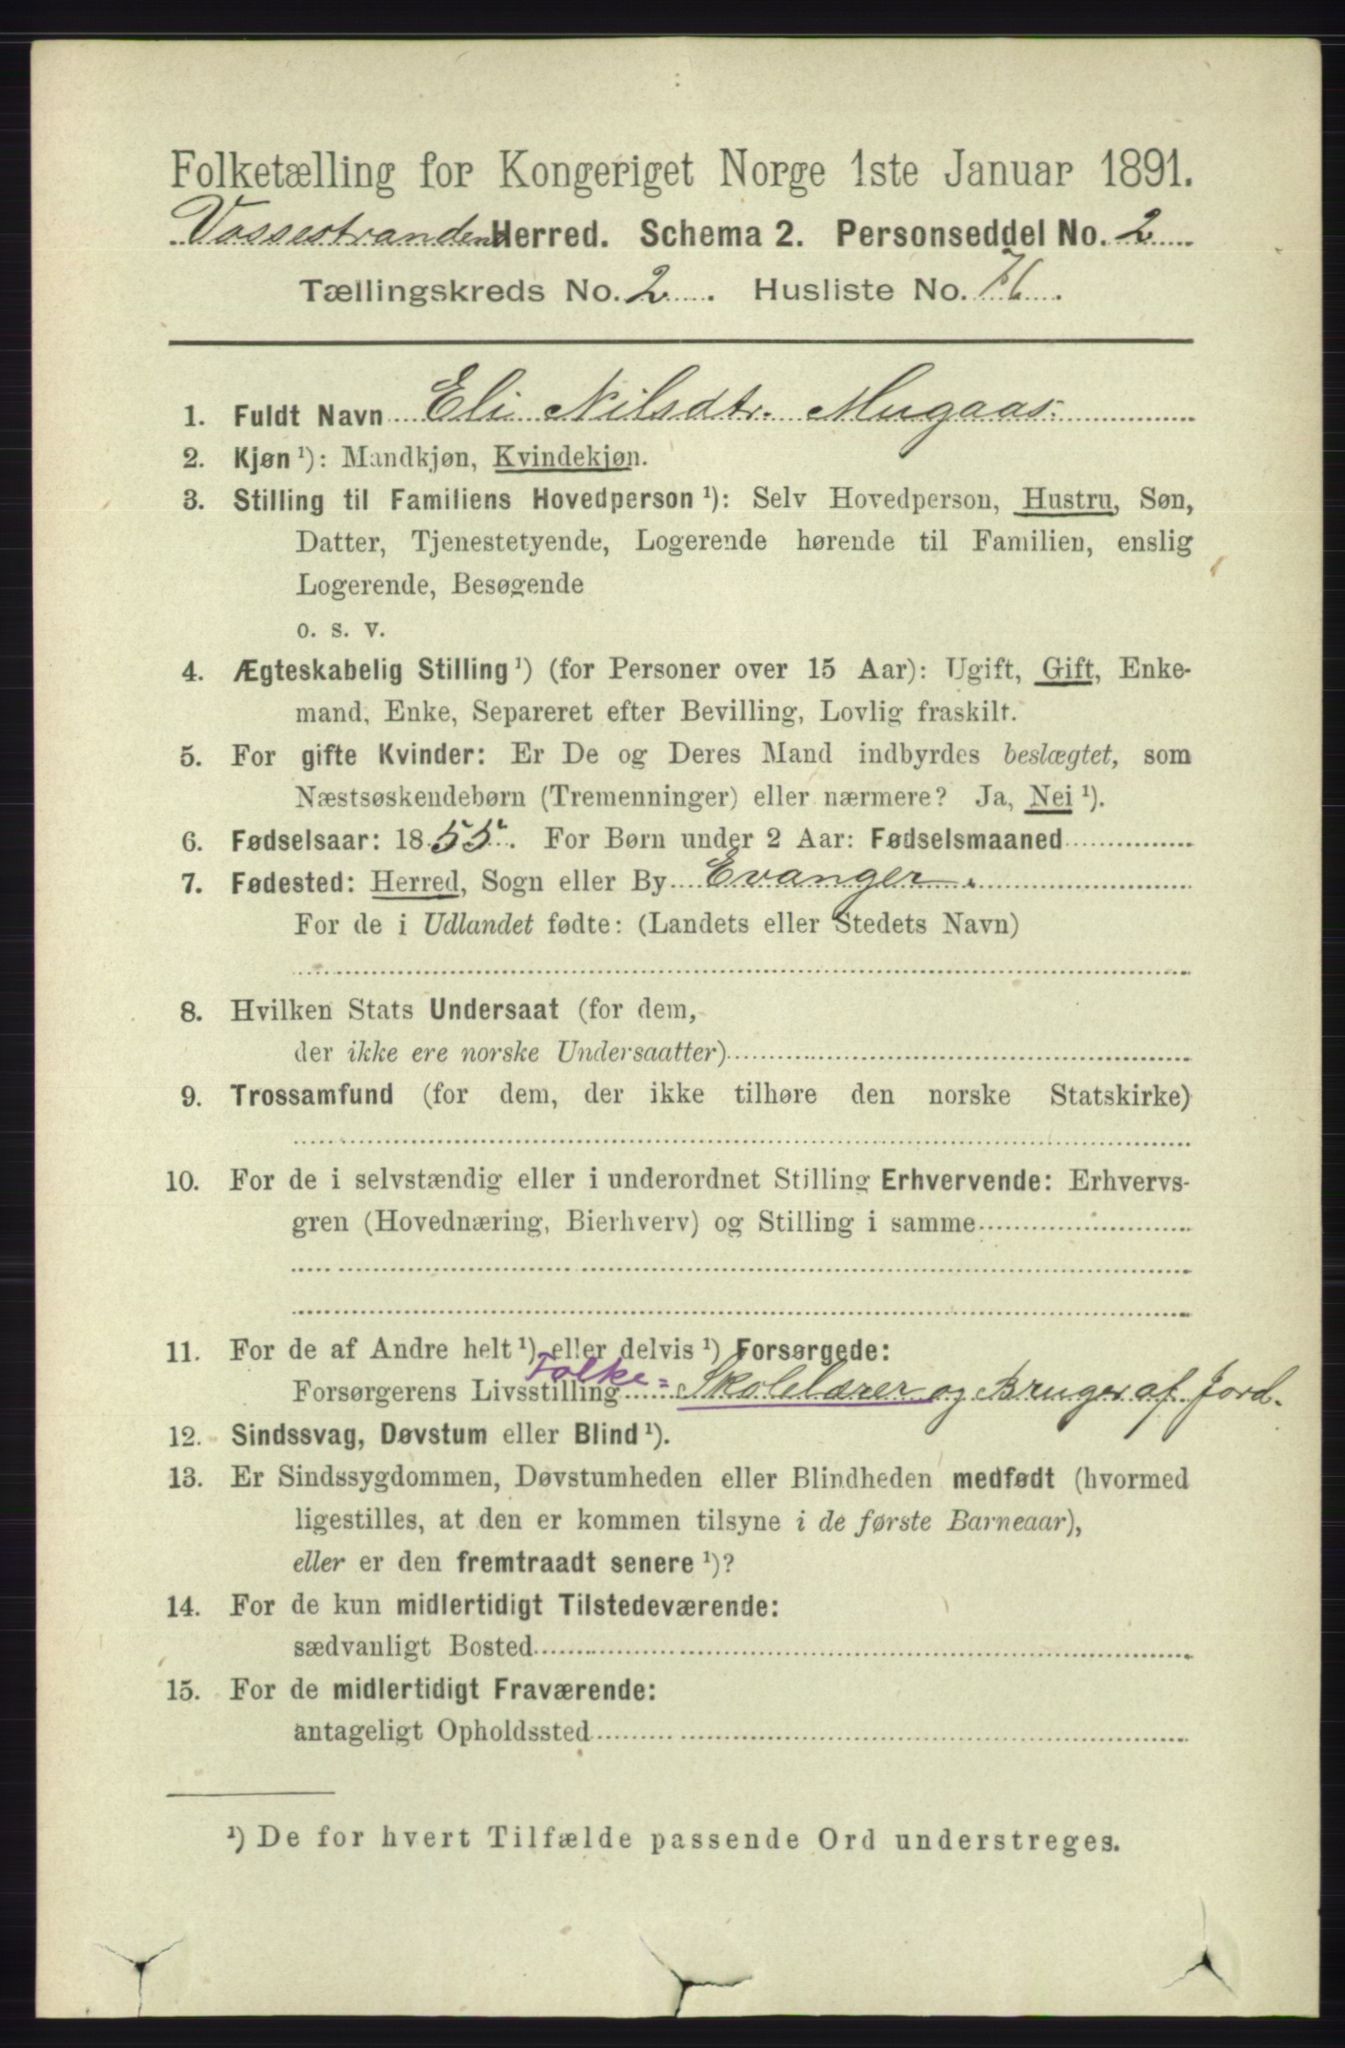 Folketælling for Kongeriget Norge 1ste Januar 1891.
Vossestranden Herred. Schema 2. Personseddel No. 2
Tællingskreds No. 2. Husliste No. 76.
1. Fuldt Navn Eli Nilsdtr. Mugaas.
2. Kjøn ¹): Mandkjøn, Kvindekjøn.
3. Stilling til Familiens Hovedperson ¹): Selv Hovedperson, Hustru, Søn,
Datter, Tjenestetyende, Logerende hørende til Familien, enslig
Logerende, Besøgende
o. s. v.
4. Ægteskabelig Stilling ¹) (for Personer over 15 Aar): Ugift, Gift, Enke-
mand, Enke, Separeret efter Bevilling, Lovlig fraskilt.
5. For gifte Kvinder: Er De og Deres Mand indbyrdes beslægtet, som
Næstsøskendebørn (Tremenninger) eller nærmere? Ja, Nei ¹).
6. Fødselsaar: 1855. For Børn under 2 Aar: Fødselsmaaned
7. Fødested: Herred, Sogn eller By Evanger.
For de i Udlandet fødte: (Landets eller Stedets Navn)
8. Hvilken Stats Undersaat (for dem,
der ikke ere norske Undersaatter)
9. Trossamfund (for dem, der ikke tilhøre den norske Statskirke)
10. For de i selvstændig eller i underordnet Stilling Erhvervende: Erhvervs-
gren (Hovednæring, Bierhverv) og Stilling i samme
11. For de af Andre helt ¹) eller delvis ¹) Forsørgede:
Forsørgerens Livsstilling Folke= Skolelærer og Bruger af Jord.
12. Sindssvag, Døvstum eller Blind ¹).
13. Er Sindssygdommen, Døvstumheden eller Blindheden medfødt (hvormed
ligestilles, at den er kommen tilsyne i de første Barneaar),
eller er den fremtraadt senere ¹)?
14. For de kun midlertidigt Tilstedeværende:
sædvanligt Bosted
15. For de midlertidigt Fraværende:
antageligt Opholdssted
¹) De for hvert Tilfælde passende Ord understreges.